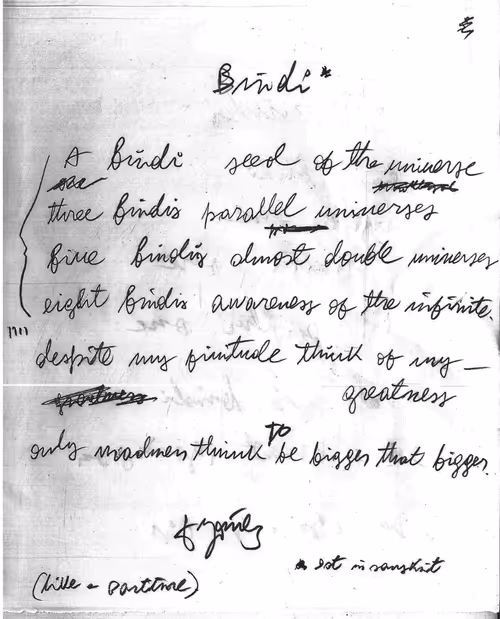 Bindi*
A bindi seed of the universe
three bindis parallel universes
five bindis almost double universes
eight bindis awareness of the infinite.
despite my finitude think of my —
greatness
only madmen think to be bigger that bigger.
(like a partitura)
* dot in sanskrit